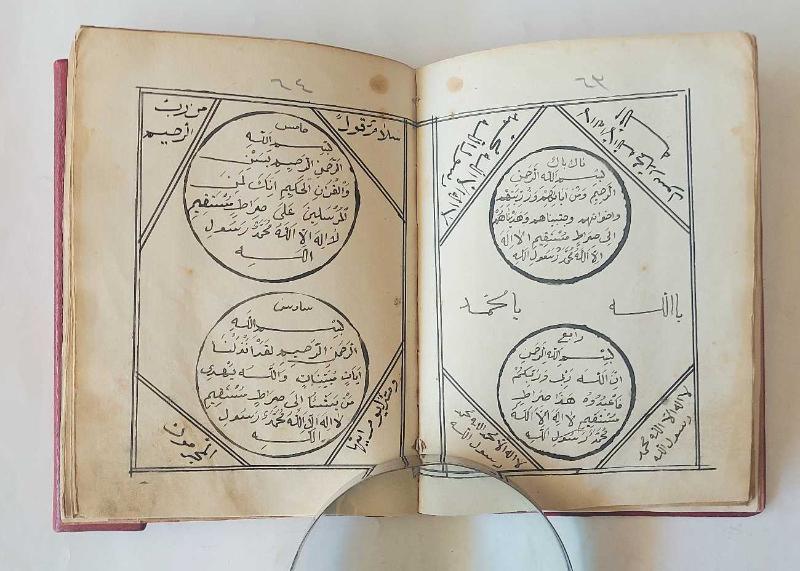 ٦٣
ثالث
بسم الله الرحمن
الرحيم ومن ابائهم وذريتهم
واخوانهم وجتبيناهم وهديناهم
الى صراط مستقيم لا اله
الا الله محمد رسول الله
يا الله
يا محمد
رابع
بسم الله الرحمن
ان الله ربى وربكم
فاعبدوه هذا صراط
مستقيم لا اله الا الله
محمد رسول الله
لا اله الا الله محمد
رسول الله
لا اله الا الله محمد
رسول الله
٦٤
سلام قولا
من رب
الرحيم
خامس
بسم الله
الرحمن الرحيم يس
والقران الحكيم انك لمن
المرسلين على صراط مستقيم
لا اله الا الله محمد رسول
الله
سادس
بسم الله
الرحمن الرحيم لقد انزلنا
ايات مبينات والله يهدى
من يشاء الى صراط مستقيم
لا اله الا الله محمد رسول
الله
وامتازوا اليوم ايها
المجرمون